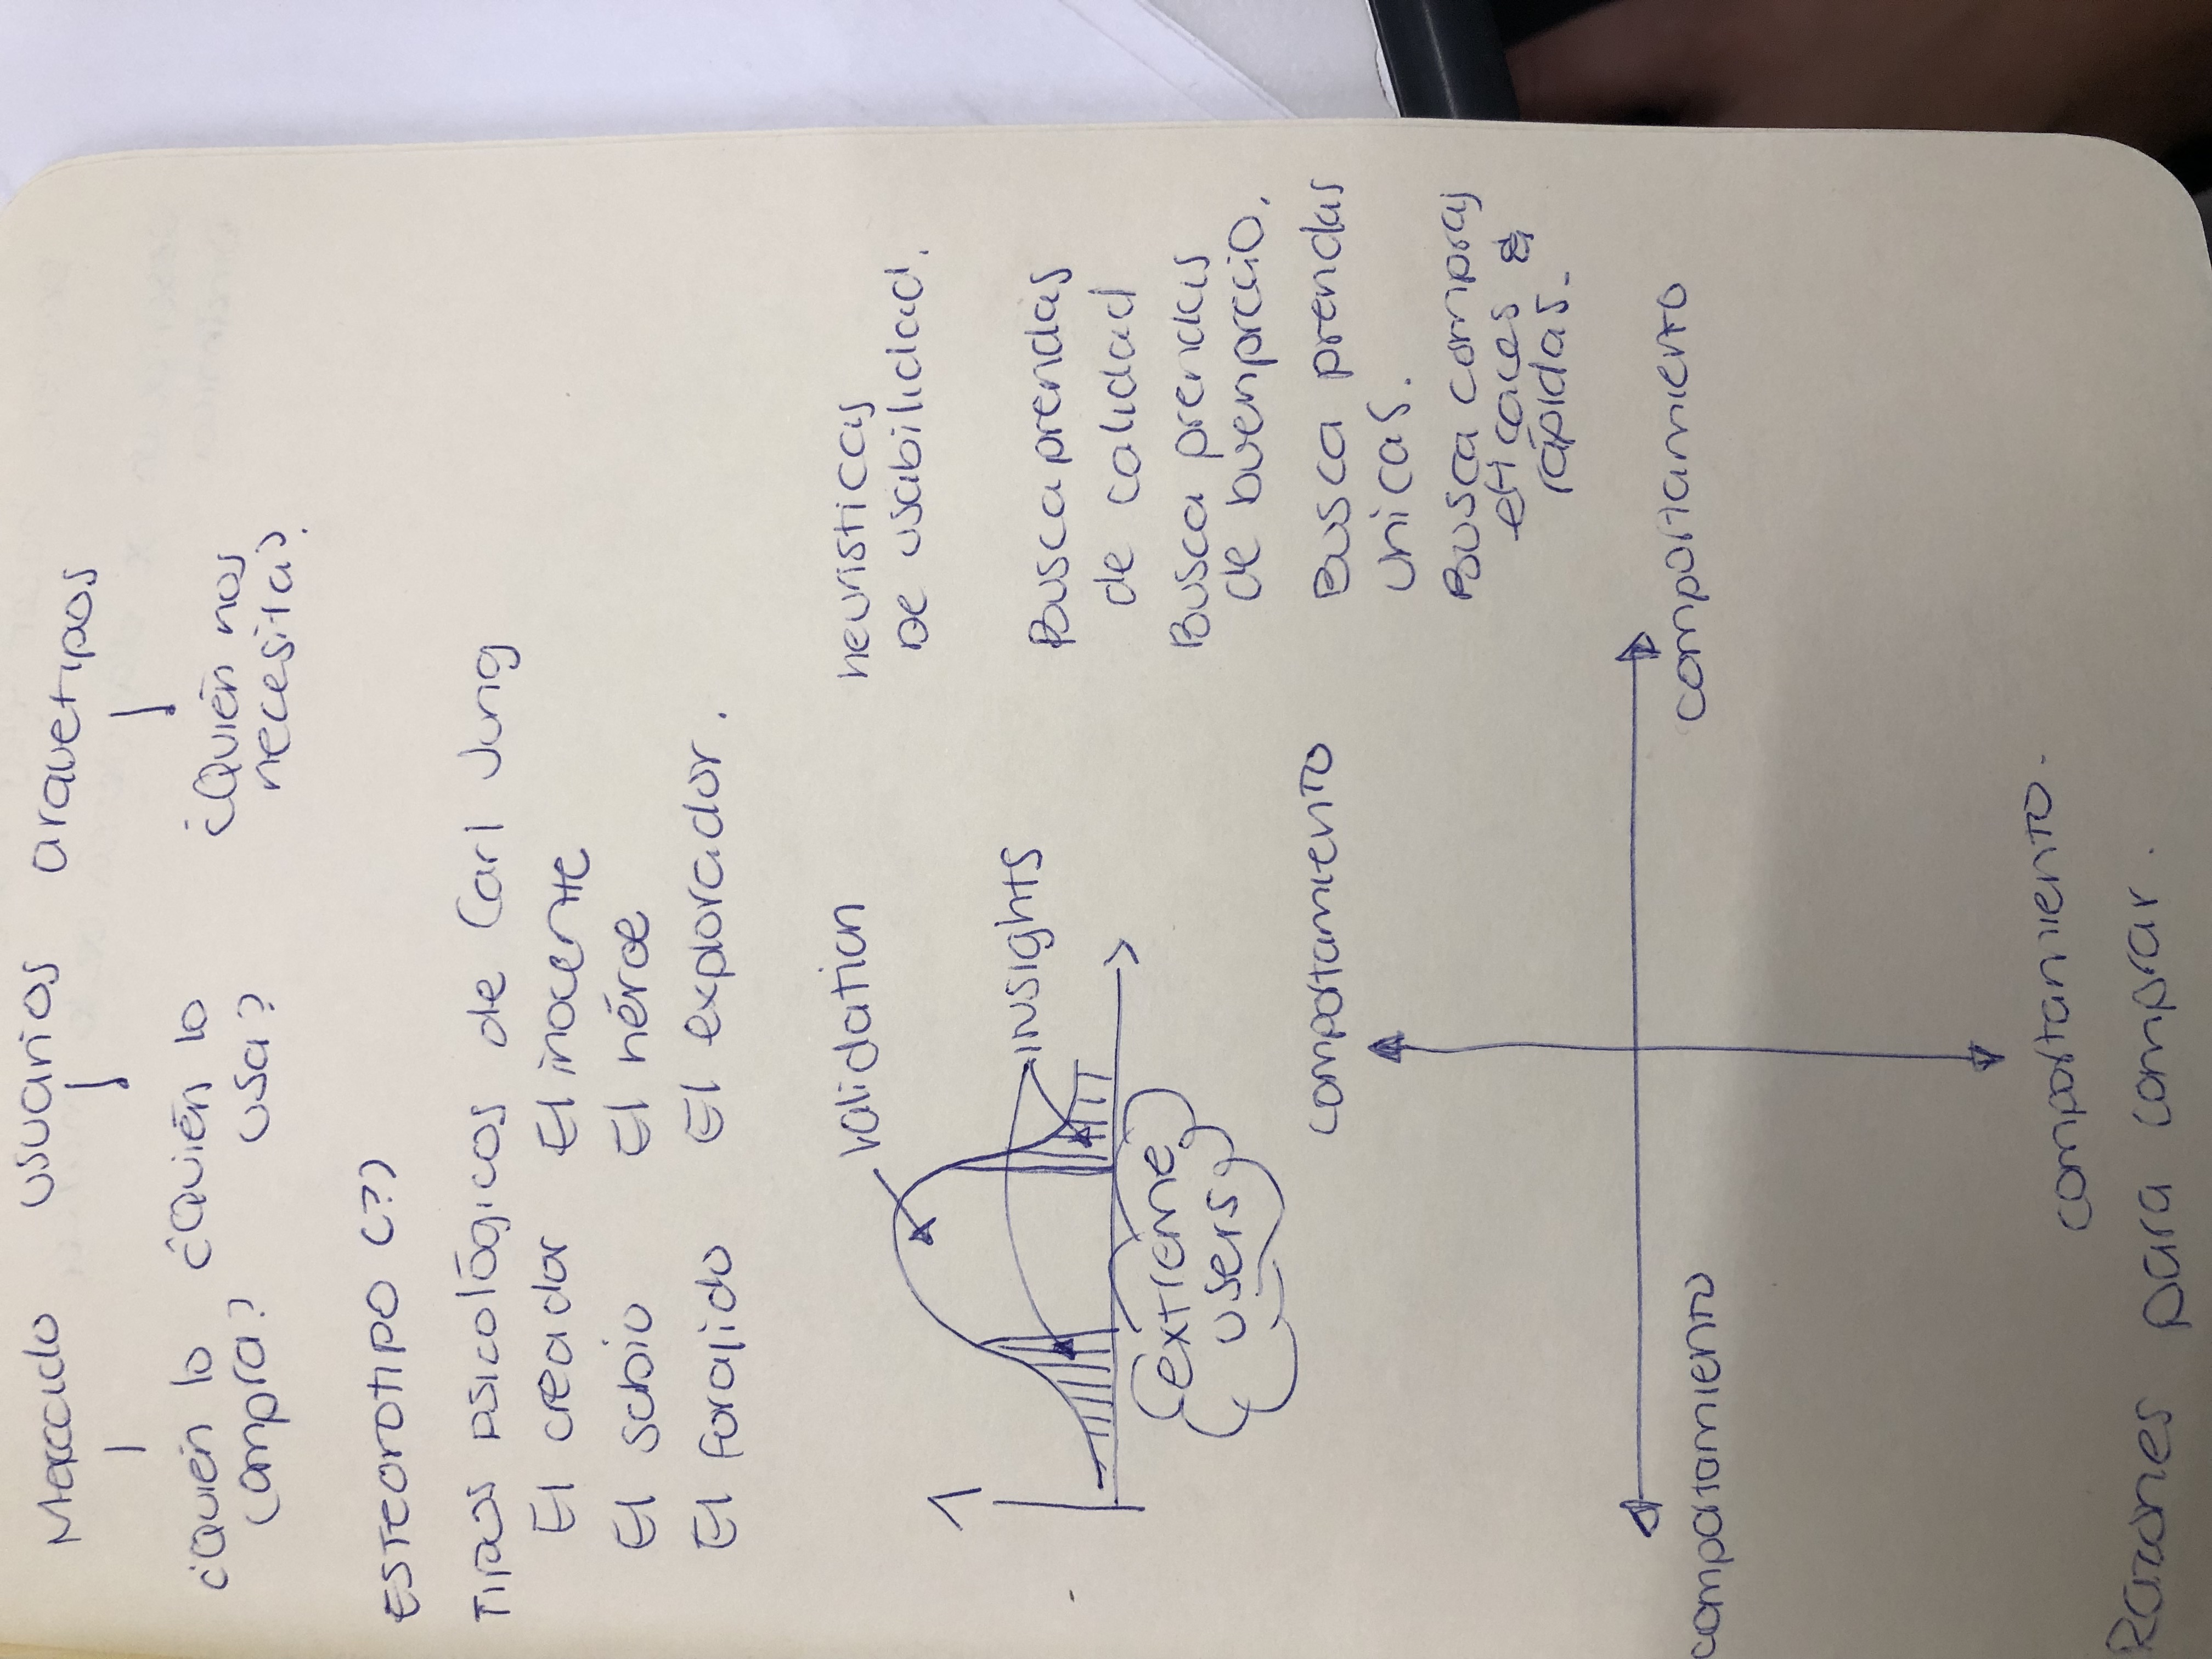 Mercado usuarios arquetipos
¿Quién lo ¿Quién lo ¿Quién nos
compra? usa? necesita?
ESTEOROTIPO (?)
Tipos psicológicos de Carl Jung
El creador El inocente
El sabio El héroe
El forajido El explorador.
validation
insights
extreme
users
heuristicas
De usabilidad.
Busca prendas
de calidad
Busca prendas
de buen precio.
Busca prendas
unicas.
Busca compras
eficaces &
rápidas.
comportamiento
comportamiento comportamiento
comportamiento.
Razones para comprar.